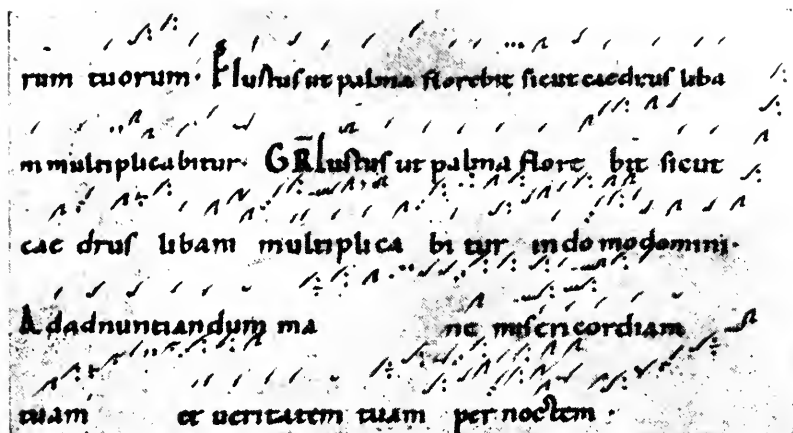 rum tuorum. Iustus ut palma florebit sicut caedrus liba
m multiplicabitur. GR Iustus ut palma flore bit sicut
cae drus libam multiplica bi tur in do mo domini.
A dadnuntiandum ma ne misericordiam
tuam et ueritatem tuam per noctem.